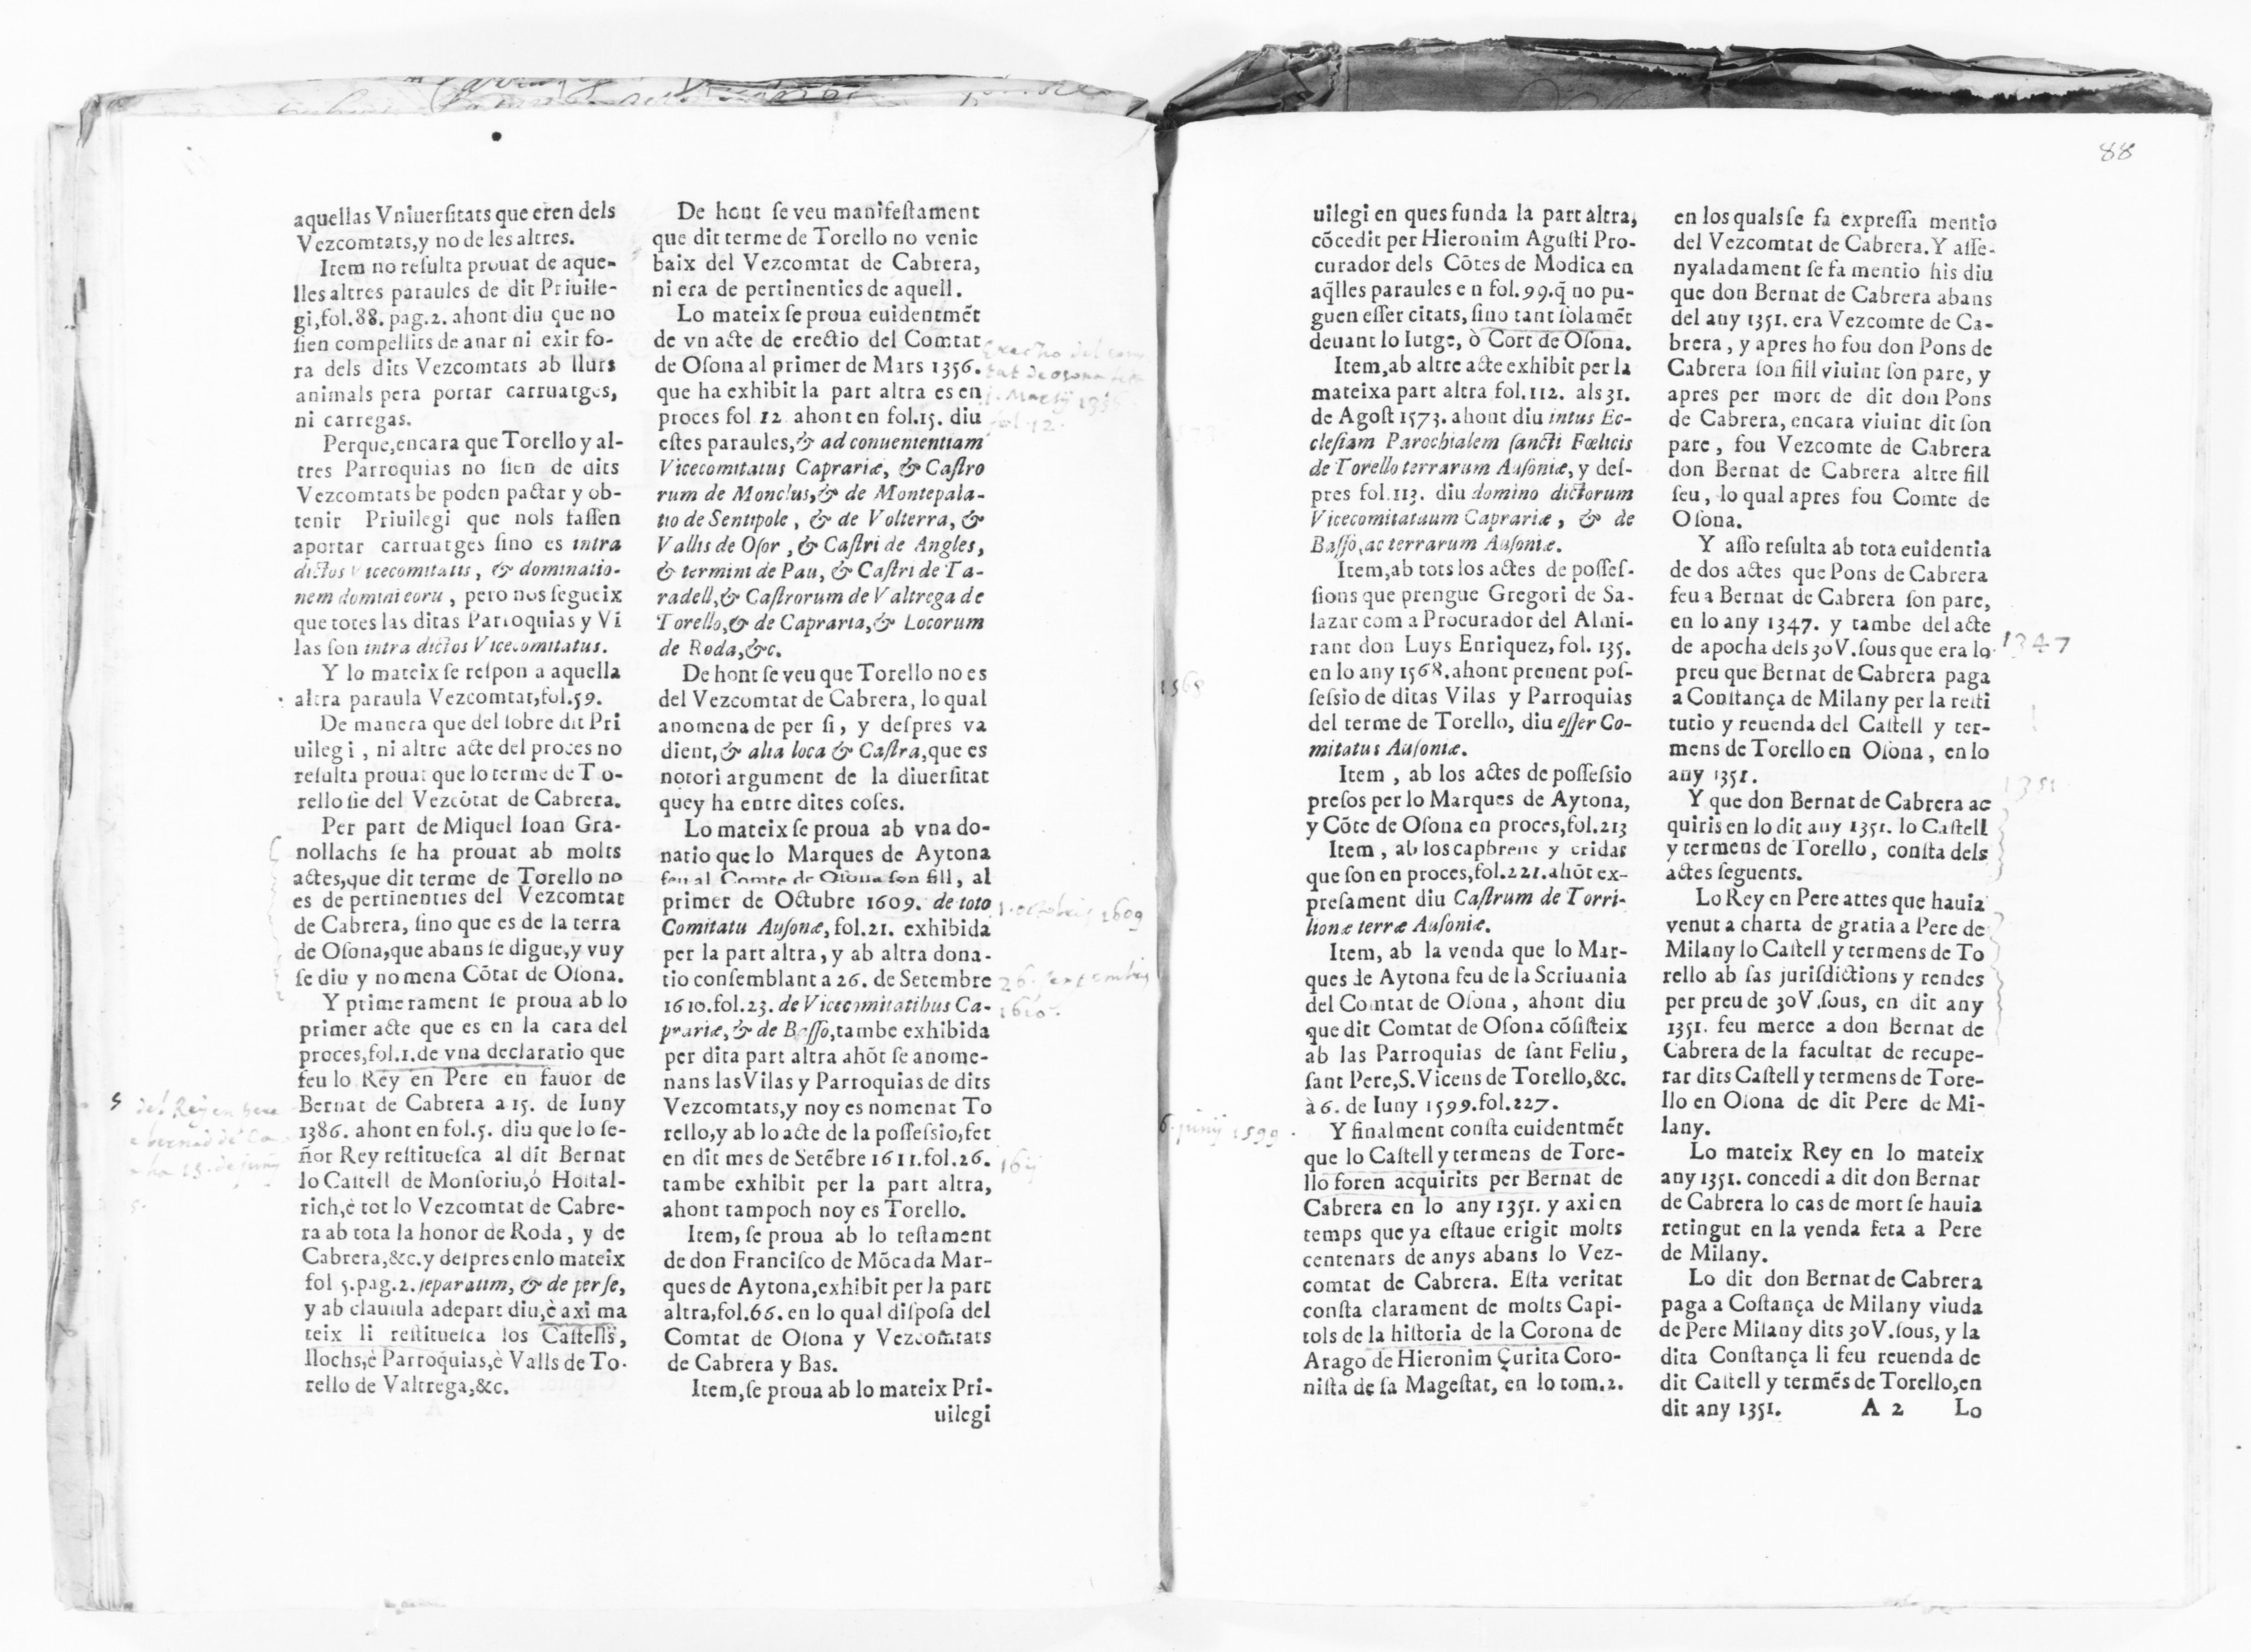 aquellas Vniuerſitats que eren dels
Vezcomtats,y no de les altres.
Item no reſulta prouat de aque-
lles altres paraules de dit Priuile-
gi,fol.88. pag.2. ahont diu que no
ſien compellits de anar ni exir fo-
ra dels dits Vezcomtats ab llurs
animals pera portar carruatges,
ni carregas.
Perque,encara que Torello y al-
tres Parroquias no ſien de dits
Vezcomtats be poden pactar y ob-
tenir Priuilegi que nols faſſen
aportar carruatges ſino es intra
dictos vicecomitatus, & dominatio-
nem domini eoru , pero nos ſegueix
que totes las ditas Parroquias y Vi
las ſon intra dictos Vicecomitatus.
Y lo mateix ſe reſpon a aquella
altra paraula Vezcomtat,fol.59.
De manera que del ſobre dit Pri
uilegi , ni altre acte del proces no
reſulta prouat que lo terme de To-
rello ſie del Vezcõtat de Cabrera.
Per part de Miquel Ioan Gra-
nollachs ſe ha prouat ab molts
actes,que dit terme de Torello no
es de pertinenties del Vezcomtat
de Cabrera, ſino que es de la terra
de Oſona,que abans ſe digue,y vuy
ſe diu y nomena Cõtat de Oſona.
Y primerament ſe proua ab lo
primer acte que es en la cara del
proces,fol.1.de vna declaratio que
feu lo Rey en Pere en fauor de
Bernat de Cabrera a 15. de Iuny
1386. ahont en fol.5. diu que lo ſe-
ñor Rey reſtitueſca al dit Bernat
lo Caſtell de Monſoriu,ò Hoſtal-
rich,è tot lo Vezcomtat de Cabre-
ra ab tota la honor de Roda , y de
Cabrera,&c.y deſpres enlo mateix
fol 5.pag.2. ſeparatim, & de per ſe,
y ab clauſula adepart diu,è axi ma
teix li reſtitueſca los Caſtells,
llochs,è Parroquias,è Valls de To-
rello de Valtrega,&c.
De hont ſe veu manifeſtament
que dit terme de Torello no venie
baix del Vezcomtat de Cabrera,
ni era de pertinenties de aquell.
Lo mateix ſe proua euidentmẽt
de vn acte de erectio del Comtat
de Oſona al primer de Mars 1356.
que ha exhibit la part altra es en
proces fol 12 ahont en fol.15. diu
eſtes paraules,& ad conuenientiam
Vicecomitatus Caprariæ, & Caſtro
rum de Monclus,& de Montepala-
tio de Sentipole , & de Volterra, &
Vallis de Oſor , & Caſtri de Angles,
& termini de Pau, & Caſtri de Ta-
radell,& Caſtrorum de Valtrega de
Torello,& de Capraria,& Locorum
de Roda,&c.
De hont ſe veu que Torello no es
del Vezcomtat de Cabrera, lo qual
anomena de per ſi, y deſpres va
dient,& alia loca & Caſtra,que es
notori argument de la diuerſitat
quey ha entre dites coſes.
Lo mateix ſe proua ab vna do-
natio que lo Marques de Aytona
feu al Comte de Oſona ſon fill, al
primer de Octubre 1609. de toto
Comitatu Auſonæ, fol.21. exhibida
per la part altra, y ab altra dona-
tio conſemblant a 26. de Setembre
1610.fol.23. de Vicecomitatibus Ca-
prariæ,& de Baſſo,tambe exhibida
per dita part altra ahõt ſe anome-
nans las Vilas y Parroquias de dits
Vezcomtats,y noy es nomenat To
rello,y ab lo acte de la poſſeſsio,fet
en dit mes de Setẽbre 1611.fol.26.
tambe exhibit per la part altra,
ahont tampoch noy es Torello.
Item, ſe proua ab lo teſtament
de don Franciſco de Mõcada Mar-
ques de Aytona,exhibit per la part
altra,fol.66. en lo qual diſpoſa del
Comtat de Oſona y Vezcomtats
de Cabrera y Bas.
Item,ſe proua ab lo mateix Pri-
uilegi
1. octobris 1609
26. septembris
1610
1611
88
uilegi en ques funda la part altra,
cõcedit per Hieronim Aguſti Pro-
curador dels Cõtes de Modica en
aq̃lles paraules en fol.99.q̃ no pu-
guen eſſer citats, ſino tant ſolamẽt
deuant lo Iutge, ò Cort de Oſona.
Item,ab altre acte exhibit per la
mateixa part altra fol.112. als 31.
de Agoſt 1573. ahont diu intus Ec-
cleſiam Parochialem ſancti Fœlicis
de Torello terrarum Auſoniæ, y deſ-
pres fol.113. diu domino dictorum
Vicecomitatuum Caprariæ , & de
Baſſo,ac terrarum Auſoniæ.
Item,ab tots los actes de poſſeſ-
ſions que prengue Gregori de Sa-
lazar com a Procurador del Almi-
rant don Luys Enriquez, fol. 135.
en lo any 1568.ahont prenent poſ-
ſeſsio de ditas Vilas y Parroquias
del terme de Torello, diu eſſer Co-
mitatus Auſoniæ.
Item , ab los actes de poſſeſsio
preſos per lo Marques de Aytona,
y Cõte de Oſona en proces,fol.213
Item , ab los capbreus y cridas
que ſon en proces,fol.221.ahõt ex-
preſament diu Caſtrum de Torri-
lionæ terræ Auſoniæ.
Item, ab la venda que lo Mar-
ques de Aytona feu de la Scriuania
del Comtat de Oſona , ahont diu
que dit Comtat de Oſona cõſiſteix
ab las Parroquias de ſant Feliu,
ſant Pere,S.Vicens de Torello,&c.
à 6. de Iuny 1599.fol.227.
Y finalment conſta euidentmẽt
que lo Caſtell y termens de Tore-
llo foren acquirits per Bernat de
Cabrera en lo any 1351. y axi en
temps que ya eſtaue erigit molts
centenars de anys abans lo Vez-
comtat de Cabrera. Eſta veritat
conſta clarament de molts Capi-
tols de la hiſtoria de la Corona de
Arago de Hieronim Çurita Coro-
niſta de ſa Mageſtat, en lo tom.2.
1568
6. junij 1599
en los quals ſe fa expreſſa mentio
del Vezcomtat de Cabrera. Y aſſe-
nyaladament ſe fa mentio his diu
que don Bernat de Cabrera abans
del any 1351. era Vezcomte de Ca-
brera , y apres ho fou don Pons de
Cabrera ſon fill viuint ſon pare, y
apres per mort de dit don Pons
de Cabrera, encara viuint dit ſon
pare , fou Vezcomte de Cabrera
don Bernat de Cabrera altre fill
ſeu , lo qual apres fou Comte de
Oſona.
Y aſſo reſulta ab tota euidentia
de dos actes que Pons de Cabrera
feu a Bernat de Cabrera ſon pare,
en lo any 1347. y tambe del acte
de apocha dels 30V.ſous que era lo
preu que Bernat de Cabrera paga
a Conſtança de Milany per la reſti
tutio y reuenda del Caſtell y ter-
mens de Torello en Oſona , en lo
any 1351.
Y que don Bernat de Cabrera ac
quiris en lo dit any 1351. lo Caſtell
y termens de Torello, conſta dels
actes ſeguents.
Lo Rey en Pere attes que hauia
venut a charta de gratia a Pere de
Milany lo Caſtell y termens de To
rello ab ſas juriſdictions y rendes
per preu de 30V.ſous, en dit any
1351. feu merce a don Bernat de
Cabrera de la facultat de recupe-
rar dits Caſtell y termens de Tore-
llo en Oſona de dit Pere de Mi-
lany.
Lo mateix Rey en lo mateix
any 1351. concedi a dit don Bernat
de Cabrera lo cas de mort ſe hauia
retingut en la venda feta a Pere
de Milany.
Lo dit don Bernat de Cabrera
paga a Coſtança de Milany viuda
de Pere Milany dits 30V.ſous, y la
dita Conſtança li feu reuenda de
dit Caſtell y termẽs de Torello,en
dit any 1351. A 2 Lo
1347
1351